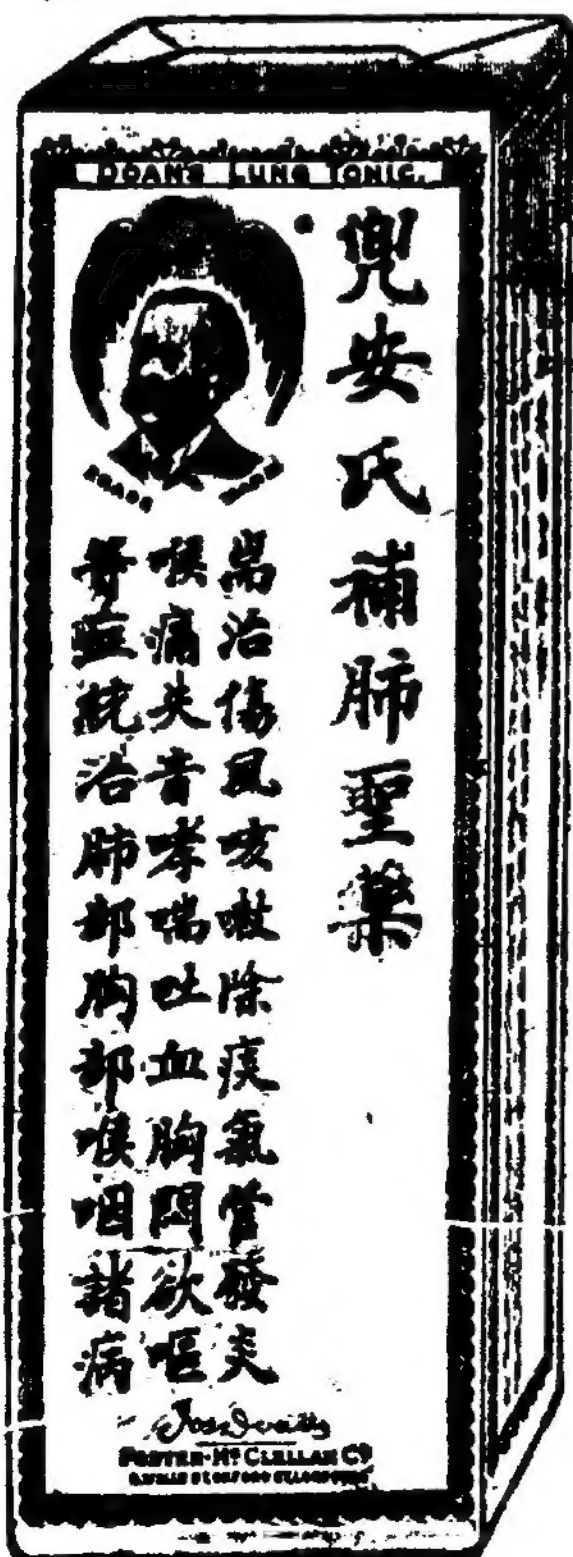 DOANS LUNG TONIC.
兜安氏補肺聖藥
耑治傷風咳嗽除痰氣管發炎
喉痛失音哮喘吐血胸悶欲嘔
等症統治肺部胸部喉咽諸病
FOSTER-McCLELLAN Co